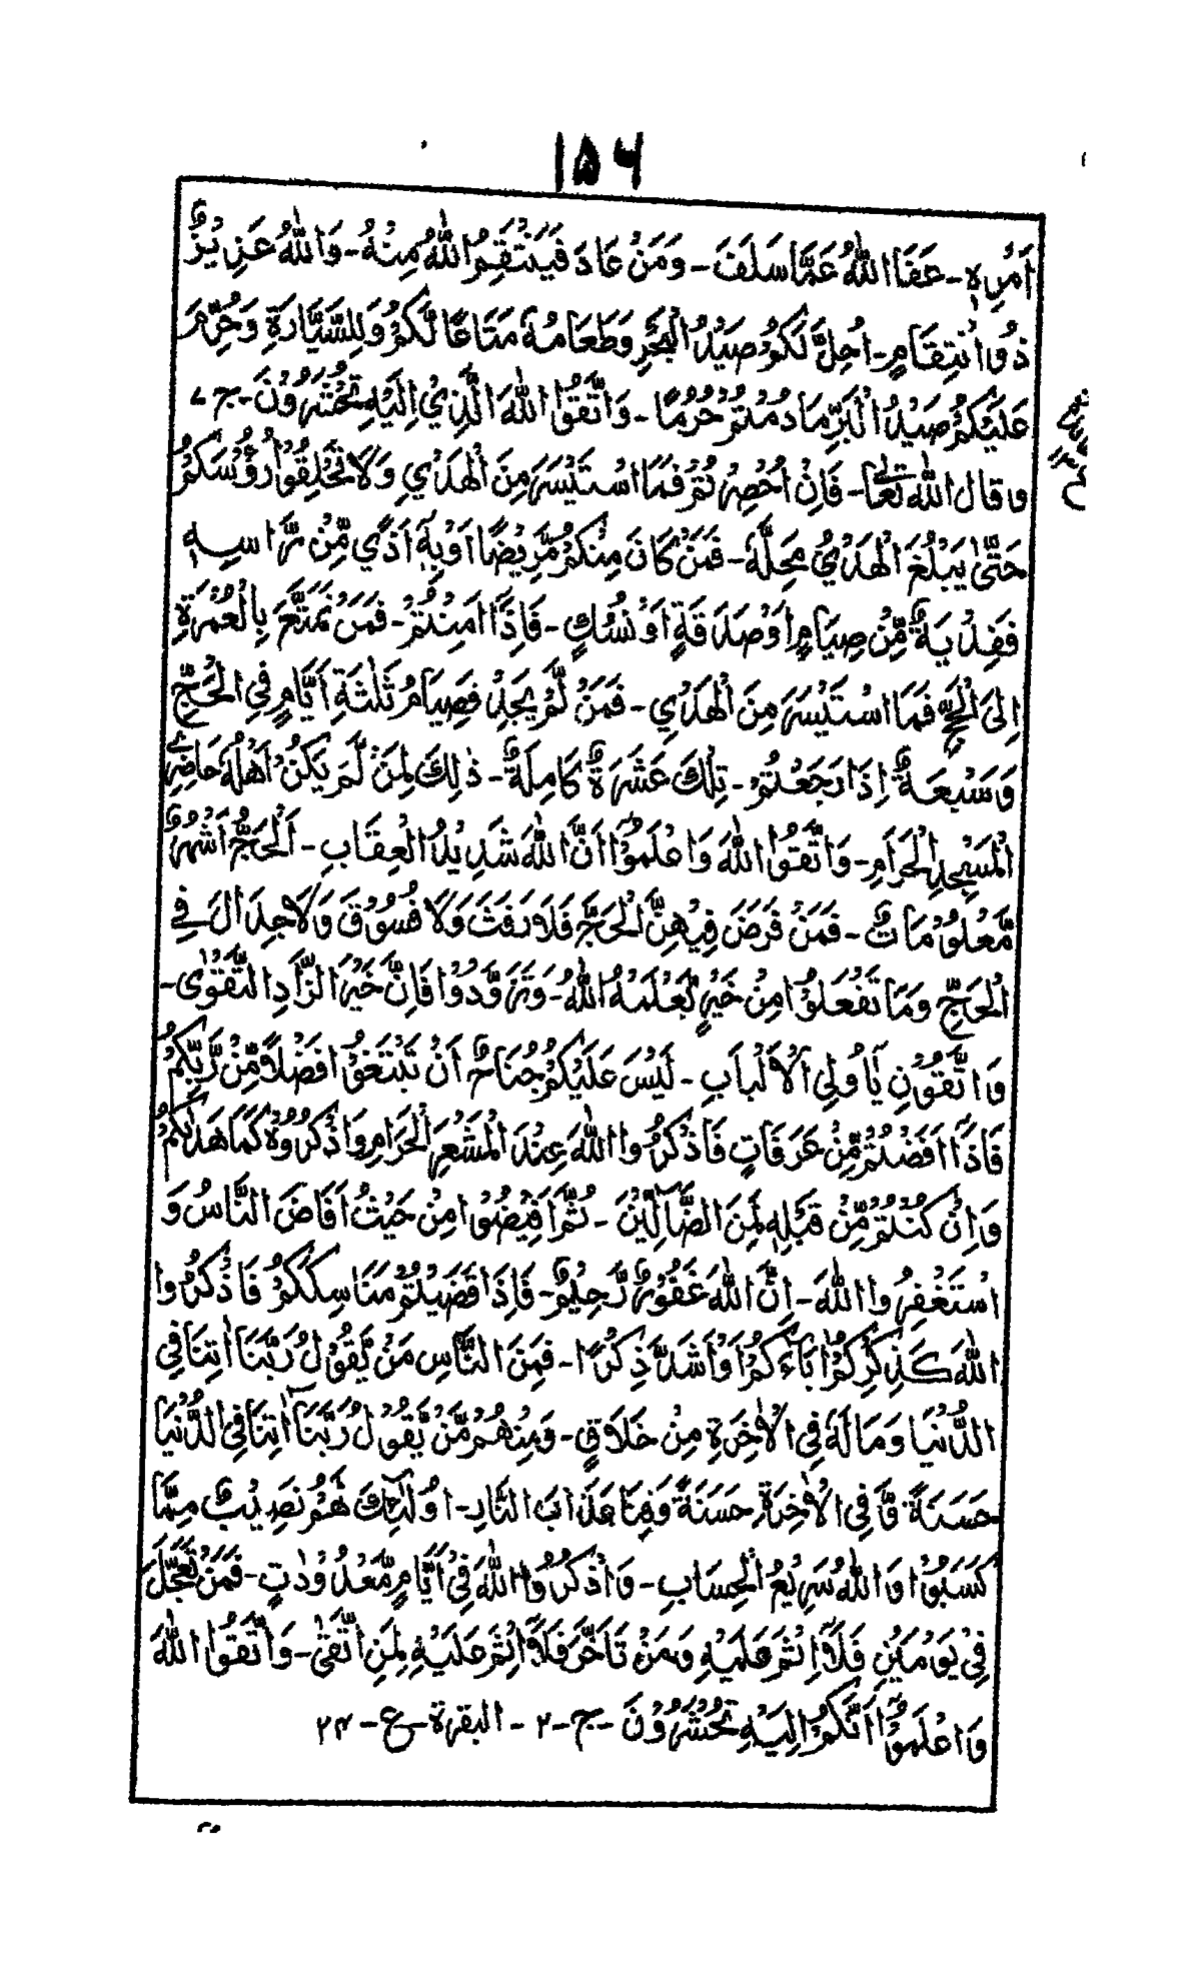 ۱۵۶
اَمْرِهٖ۔ عَفَا اللّٰهُ عَمَّا سَلَفَ۔ وَمَنْ عَادَ فَيَنْتَقِمُ اللّٰهُ مِنْهُ۔ وَاللّٰهُ عَزِيْزٌ
ذُو انْتِقَامٍ۔ اُحِلَّ لَكُمْ صَيْدُ الْبَحْرِ وَطَعَامُهٗ مَتَاعًا لَّكُمْ وَلِلسَّيَّارَةِ وَحُرِّمَ
عَلَيْكُمْ صَيْدُ الْبَرِّ مَا دُمْتُمْ حُرُمًا۔ وَاتَّقُوا اللّٰهَ الَّذِيْ اِلَيْهِ تُحْشَرُوْنَ۔ ج ۷
و قال اللّٰه تعالٰى۔ فَاِنْ اُحْصِرْتُمْ فَمَا اسْتَيْسَرَ مِنَ الْهَدْيِ وَلَا تَحْلِقُوْا رُؤُسَكُمْ
حَتّٰى يَبْلُغَ الْهَدْيُ مَحِلَّهٗ۔ فَمَنْ كَانَ مِنْكُمْ مَّرِيْضًا اَوْ بِهٖٓ اَذًى مِّنْ رَّاْسِهٖ
فَفِدْيَةٌ مِّنْ صِيَامٍ اَوْ صَدَقَةٍ اَوْ نُسُكٍ۔ فَاِذَآ اَمِنْتُمْ۔ فَمَنْ تَمَتَّعَ بِالْعُمْرَةِ
اِلَى الْحَجِّ فَمَا اسْتَيْسَرَ مِنَ الْهَدْيِ۔ فَمَنْ لَّمْ يَجِدْ فَصِيَامُ ثَلٰثَةِ اَيَّامٍ فِي الْحَجِّ
وَسَبْعَةٌ اِذَا رَجَعْتُمْ۔ تِلْكَ عَشَرَةٌ كَامِلَةٌ۔ ذٰلِكَ لِمَنْ لَّمْ يَكُنْ اَهْلُهٗ حَاضِرِي
الْمَسْجِدِ الْحَرَامِ۔ وَاتَّقُوا اللّٰهَ وَاعْلَمُوْٓا اَنَّ اللّٰهَ شَدِيْدُ الْعِقَابِ۔ اَلْحَجُّ اَشْهُرٌ
مَّعْلُوْمَاتٌ۔ فَمَنْ فَرَضَ فِيْهِنَّ الْحَجَّ فَلَا رَفَثَ وَلَا فُسُوْقَ وَلَا جِدَالَ فِي
الْحَجِّ وَمَا تَفْعَلُوْا مِنْ خَيْرٍ يَّعْلَمْهُ اللّٰهُ۔ وَتَزَوَّدُوْا فَاِنَّ خَيْرَ الزَّادِ التَّقْوٰى۔
وَاتَّقُوْنِ يٰٓاُولِي الْاَلْبَابِ۔ لَيْسَ عَلَيْكُمْ جُنَاحٌ اَنْ تَبْتَغُوْا فَضْلًا مِّنْ رَّبِّكُمْ
فَاِذَآ اَفَضْتُمْ مِّنْ عَرَفَاتٍ فَاذْكُرُوا اللّٰهَ عِنْدَ الْمَشْعَرِ الْحَرَامِ وَاذْكُرُوْهُ كَمَا هَدٰىكُمْ
وَاِنْ كُنْتُمْ مِّنْ قَبْلِهٖ لَمِنَ الضَّآلِّيْنَ۔ ثُمَّ اَفِيْضُوْا مِنْ حَيْثُ اَفَاضَ النَّاسُ وَ
اسْتَغْفِرُوا اللّٰهَ۔ اِنَّ اللّٰهَ غَفُوْرٌ رَّحِيْمٌ۔ فَاِذَا قَضَيْتُمْ مَنَاسِكَكُمْ فَاذْكُرُوا
اللّٰهَ كَذِكْرِكُمْ اٰبَآءَكُمْ اَوْ اَشَدَّ ذِكْرًا۔ فَمِنَ النَّاسِ مَنْ يَّقُوْلُ رَبَّنَا اٰتِنَا فِي
الدُّنْيَا وَمَا لَهٗ فِي الْاٰخِرَةِ مِنْ خَلَاقٍ۔ وَمِنْهُمْ مَّنْ يَّقُوْلُ رَبَّنَآ اٰتِنَا فِي الدُّنْيَا
حَسَنَةً وَّفِي الْاٰخِرَةِ حَسَنَةً وَّقِنَا عَذَابَ النَّارِ۔ اُولٰٓئِكَ لَهُمْ نَصِيْبٌ مِمَّا
كَسَبُوْا وَاللّٰهُ سَرِيْعُ الْحِسَابِ۔ وَاذْكُرُوا اللّٰهَ فِيْٓ اَيَّامٍ مَّعْدُوْدٰتٍ۔ فَمَنْ تَعَجَّلَ
فِيْ يَوْمَيْنِ فَلَآ اِثْمَ عَلَيْهِ وَمَنْ تَاَخَّرَ فَلَآ اِثْمَ عَلَيْهِ لِمَنِ اتَّقٰى۔ وَاتَّقُوا اللّٰهَ
وَاعْلَمُوْٓا اَنَّكُمْ اِلَيْهِ تُحْشَرُوْنَ۔ ج۔ ۲۔ البقرة۔ ع۔ ۲۴